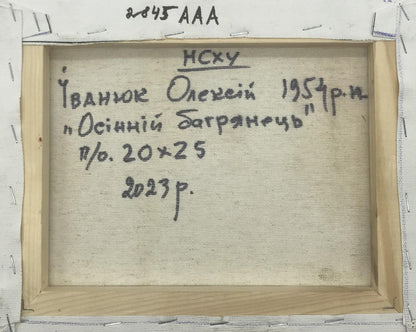 2845 ААА
НСХУ
Іванюк Олексій 1954р.н
„Осінній багрянець"
п/о. 20×25
2023р.